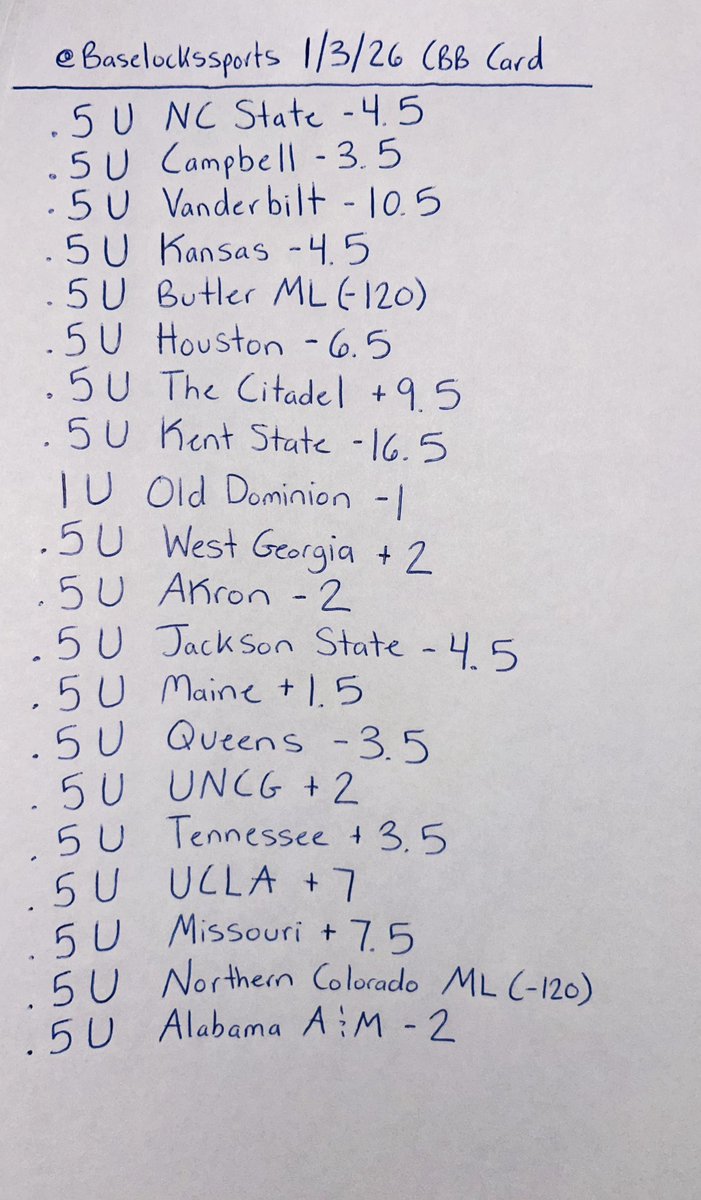 @Baselockssports 1/3/26 CBB Card
.5 U NC State -4.5
.5 U Campbell -3.5
.5 U Vanderbilt -10.5
.5 U Kansas -4.5
.5 U Butler ML (-120)
.5 U Houston -6.5
.5 U The Citadel +9.5
.5 U Kent State -16.5
1 U Old Dominion -1
.5 U West Georgia +2
.5 U Akron -2
.5 U Jackson State -4.5
.5 U Maine +1.5
.5 U Queens -3.5
.5 U UNCG +2
.5 U Tennessee +3.5
.5 U UCLA +7
.5 U Missouri +7.5
.5 U Northern Colorado ML (-120)
.5 U Alabama A&M -2